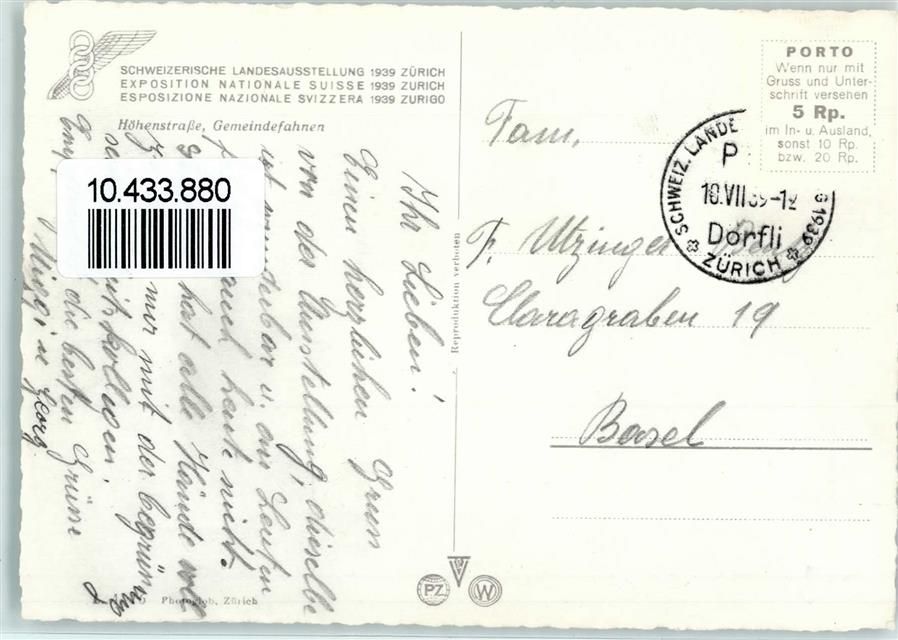 SCHWEIZERISCHE LANDESAUSSTELLUNG 1939 ZÜRICH
EXPOSITION NATIONALE SUISSE 1939 ZURICH
ESPOSIZIONE NAZIONALE SVIZZERA 1939 ZURIGO
Höhenstraße, Gemeindefahnen
10.433.880
Ihr Lieben!
Einen herzlichen Gruss
von der Ausstellung, dieselbe
ist wunderbar u. an Leuten
auch heute nicht.
hat alle Hände voll
mir mit der
die besten Grüsse
u Georg
Photoglob, Zürich
Reproduktion verboten
PORTO
Wenn nur mit
Gruss und Unter-
schrift versehen
5 Rp.
im In- u. Ausland,
sonst 10 Rp.
bzw. 20 Rp.
SCHWEIZ. LANDE
G 1939
P
10.VII 39-12
Dörfli
ZÜRICH
Fam.
F. Utzinger
Claragraben 19
Basel
PZ
W